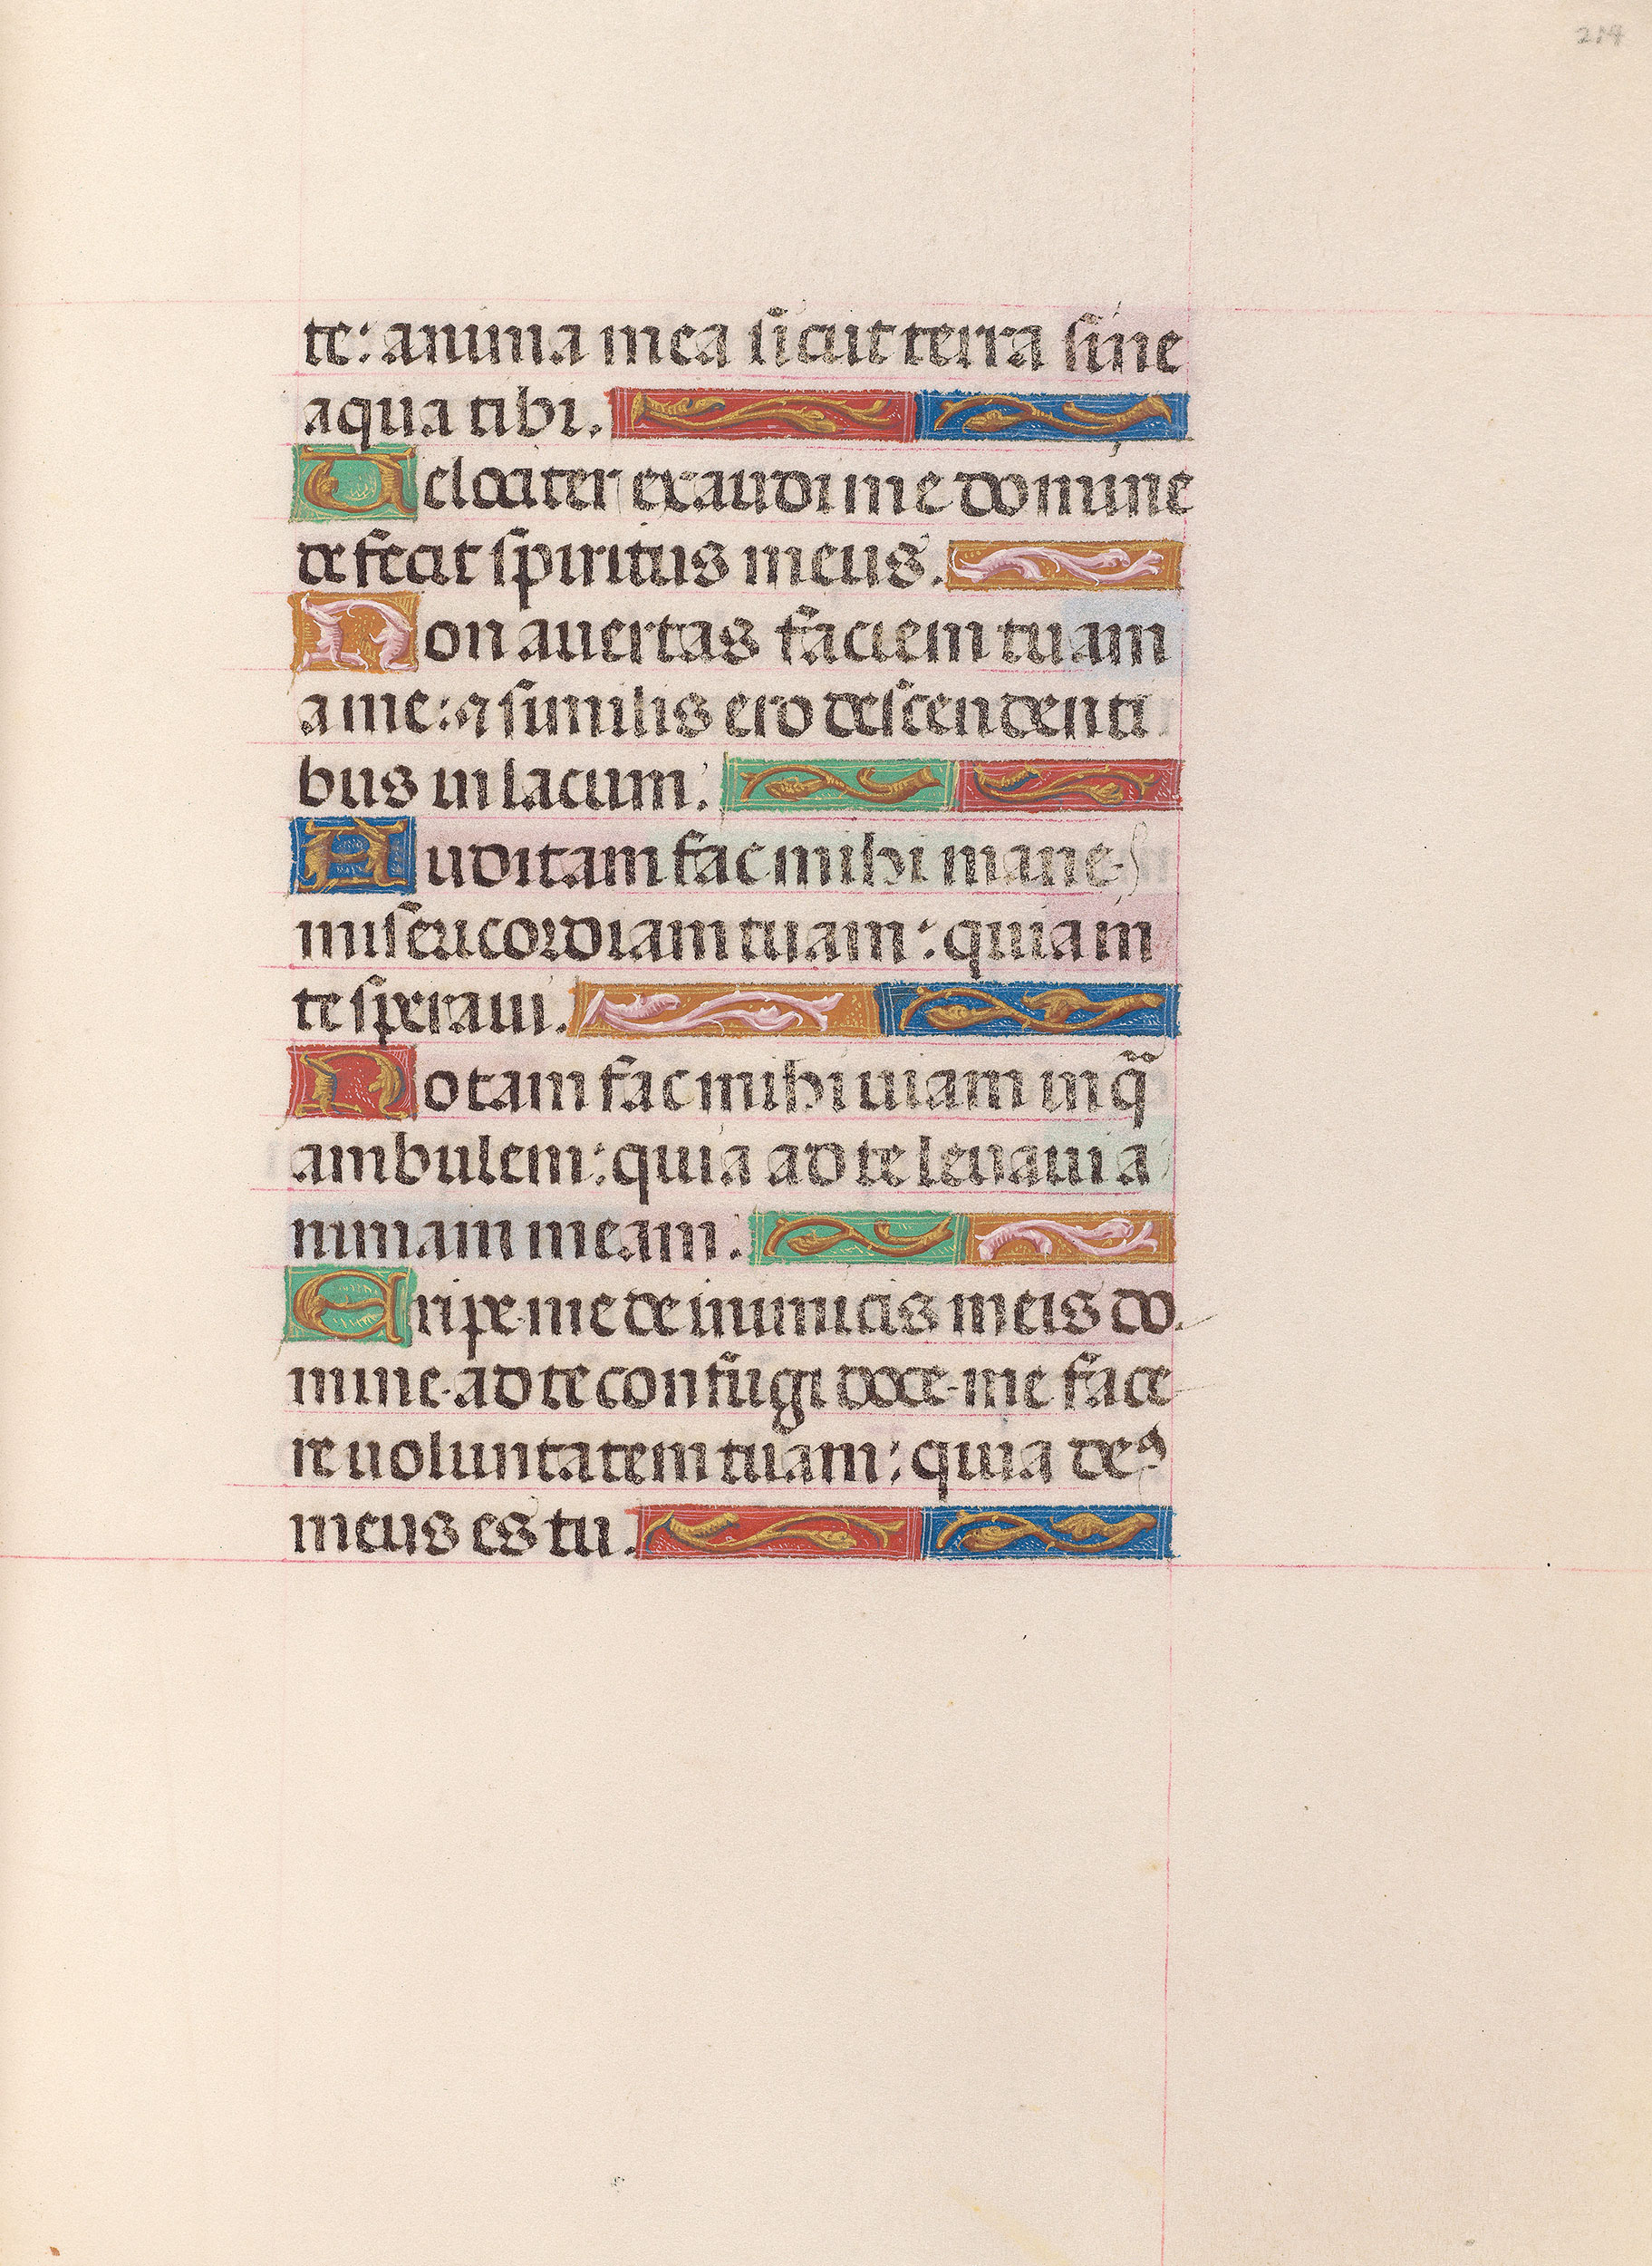 214
te: anima mea sicut terra sine
aqua tibi.
Velociter exaudi me domine
defecit spiritus meus.
Non auertas faciem tuam
a me: ⁊ similis ero descendenti
bus in lacum.
Auditam fac mihi mane
misericordiam tuam: quia in
te speraui.
Notam fac mihi uiam in q̃
ambulem: quia ad te leuaui a
nimam meam.
Eripe me de inimicis meis do
mine ad te confugi doce me face
re uoluntatem tuam: quia deꝰ
meus es tu.